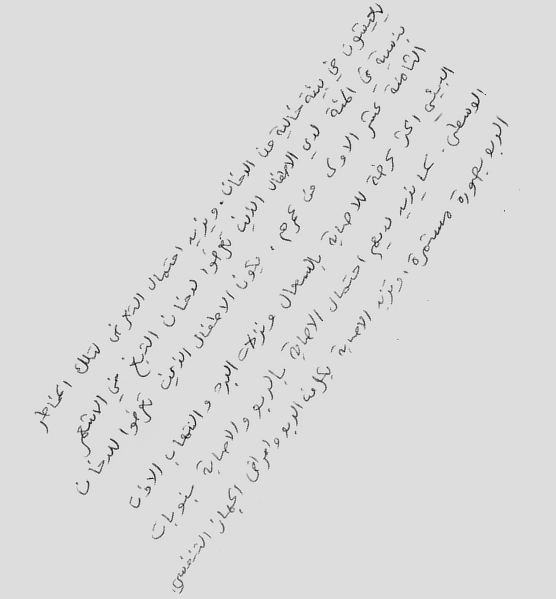 يعيشون في بيئة خالية من الدخان. ويزيد احتمال التعرض لتلك المخاطر
بنسبة في المئة لدى الاطفال الذين تعرضوا لدخان التبغ في الاشهر
الثامنة عشر الاولى من عمرهم. يكون الاطفال الذين تعرضوا للدخان
البيئي اكثر عرضة للاصابة بالسعال ونزلات البرد والتهاب الاذن
الوسطى. كما يزيد لديهم احتمال الاصابة بالربو والاصابة بنوبات
الربو بصورة مستمرة او تزيد الاصابة الربو وامراض الجهاز التنفسي